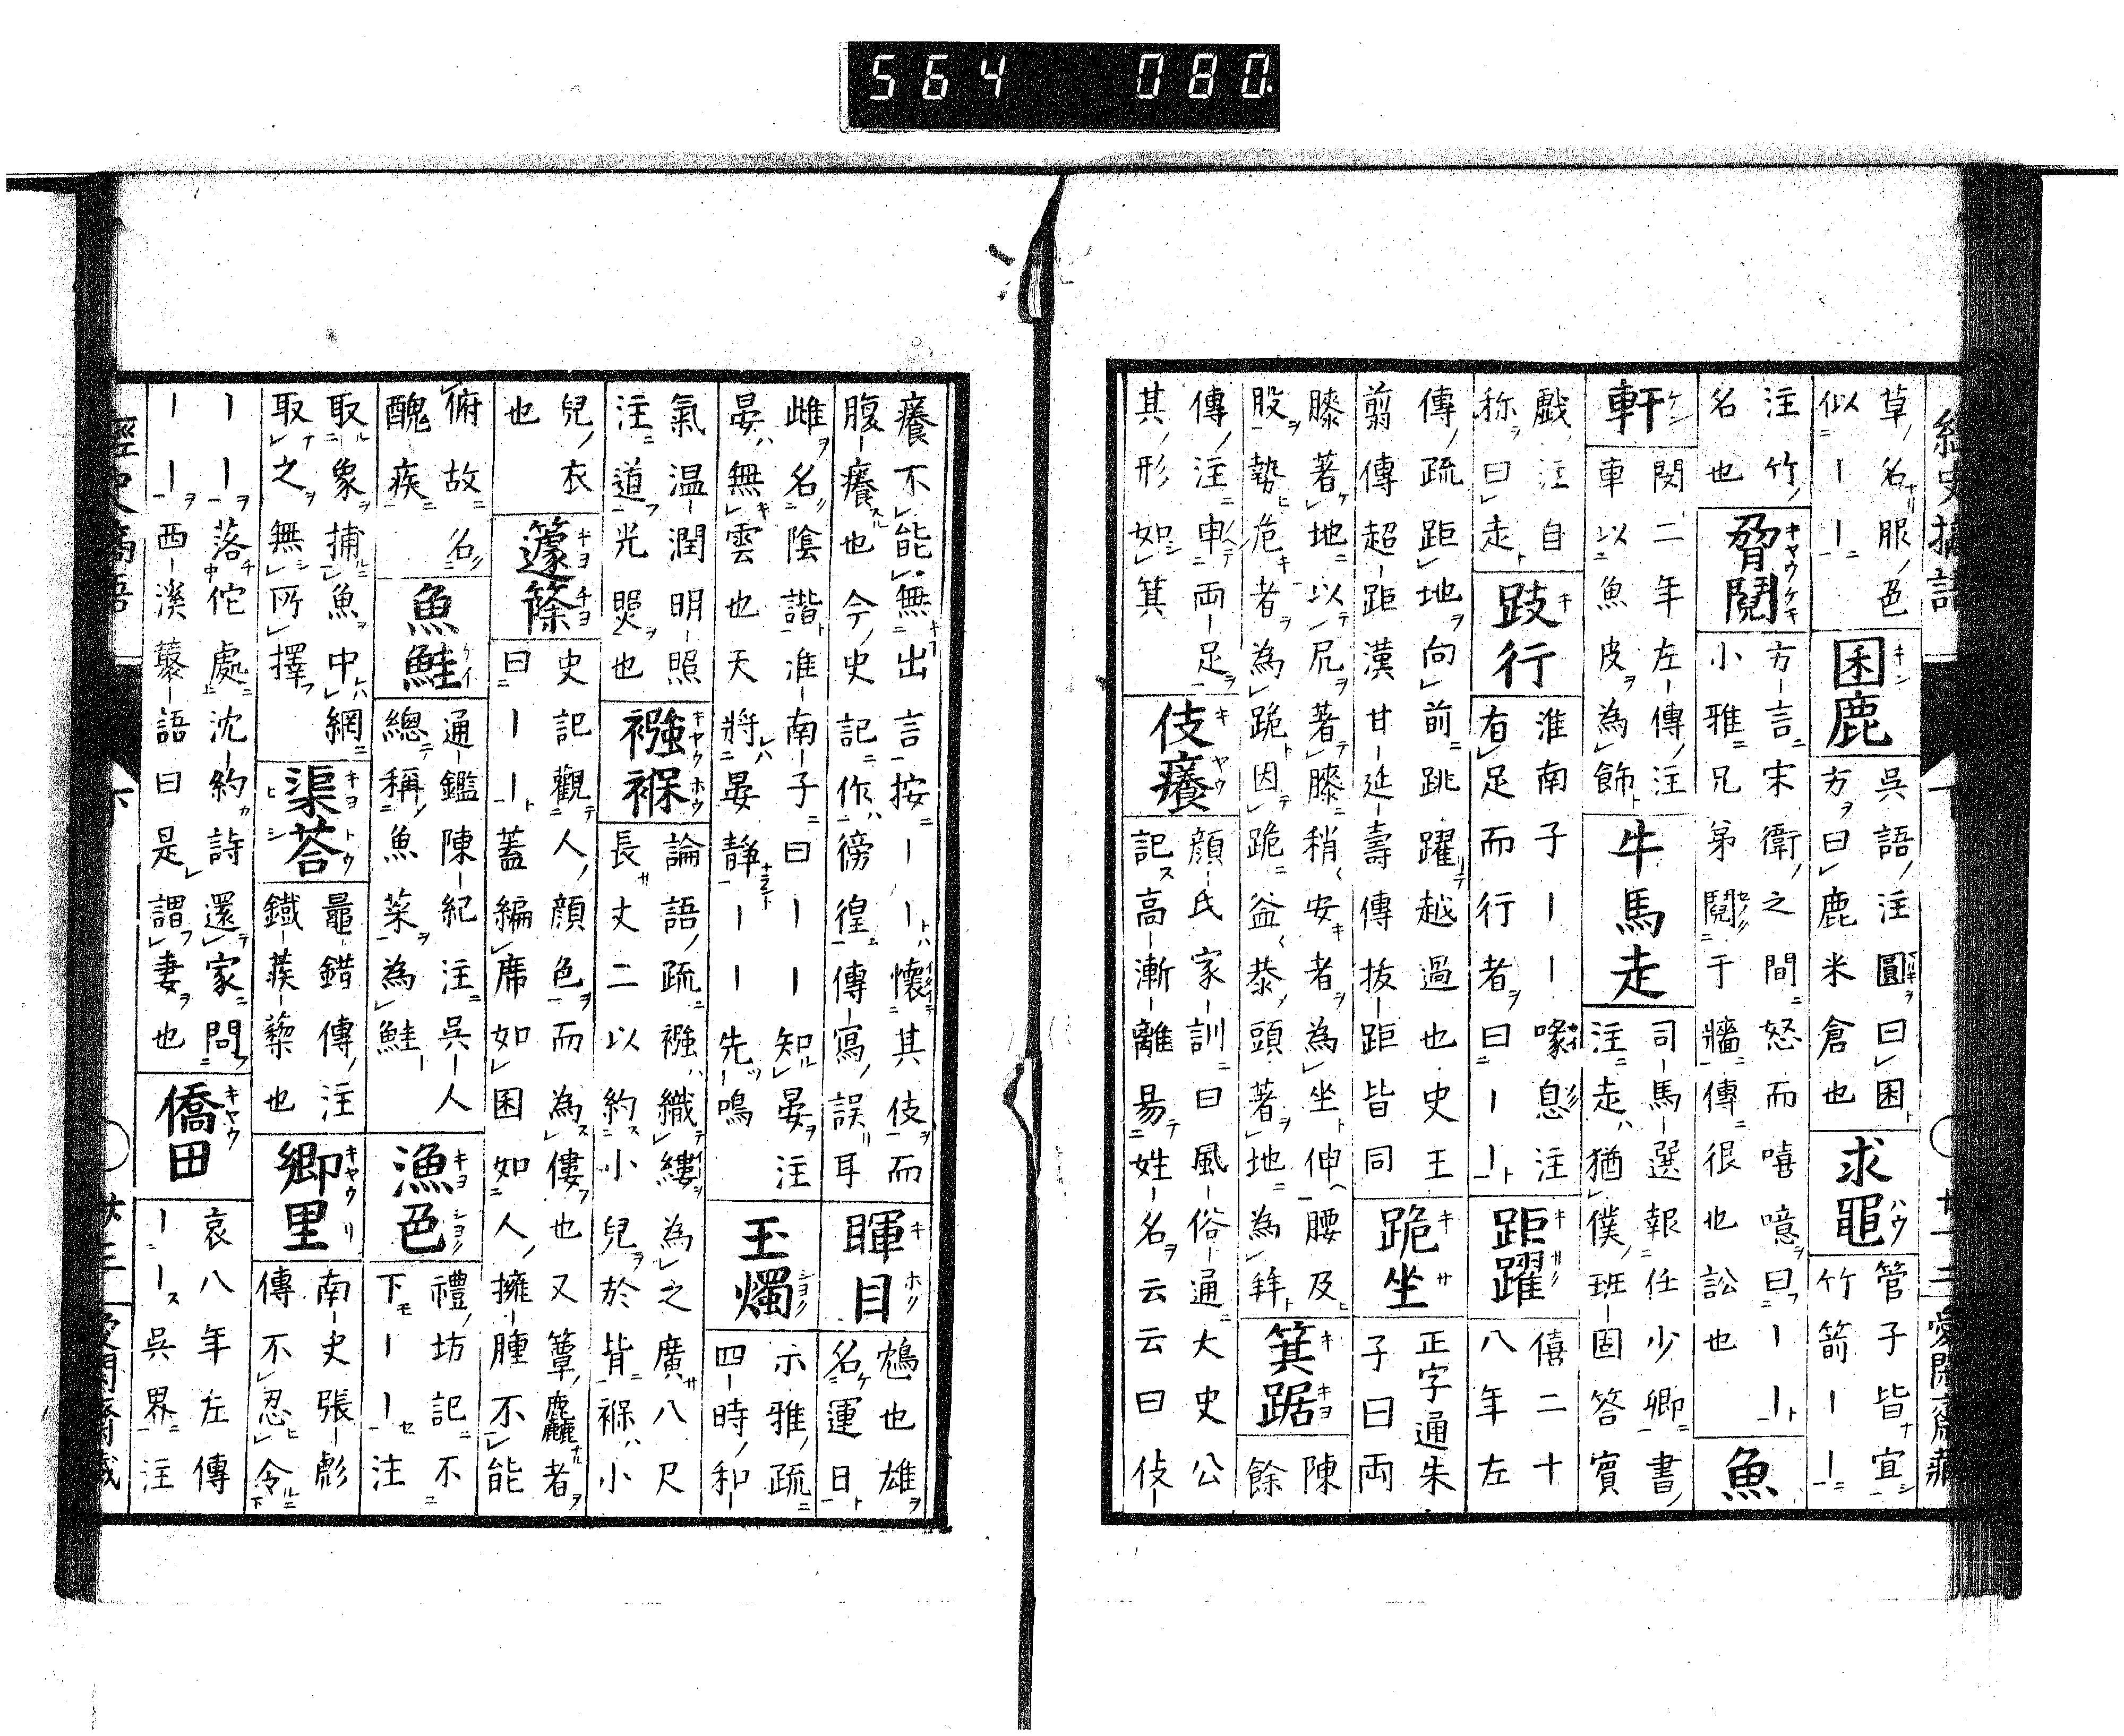 564 080
經史摘語
草名服邑
似ーー
囷鹿
吳語注圓曰囷
方曰鹿米倉也
求黽
管子皆宜
竹箭ーー
注竹
名也
胷鬩
方言宋衛之間怒而嘻噫曰ーー
小雅兄弟鬩于牆傳很也訟也
魚
軒
閔二年左傳注
車以魚皮為飾
牛馬走
司馬選報任少卿書
注走猶僕班固答賓
戲注自
称曰走
跂行
淮南子ーー喙息注
有足而行者曰ーー
距躍
僖二十
八年左
傳疏距地向前跳躍越過也史王
翦傳超距漢甘延壽傳拔距皆同
跪坐
正字通朱
子曰兩
膝著地以尻著膝稍安者為坐伸腰及
股勢危者為跪因跪益恭頭著地為拜
箕踞
陳
餘
傳注申兩足
其形如箕
伎癢
顔氏家訓曰風俗通大史公
記高漸離昜姓名云云曰伎
癢不能無出言按ーー懷其伎而
腹癢也今史記作徬徨傳寫誤耳
暉目
鴆也雄
名運日
雌名陰諧淮南子曰ーー知晏注
晏無雲也天將晏静ーー先鳴
玉燭
尓雅疏
四時和
氣温潤明照
注道光照也
襁褓
論語疏襁織縷為之廣八尺
長丈二以約小兒於背褓小
兒衣
也
籧篨
史記觀人顔色而為僂也又簟麤者
曰ーー蓋編席如囷如人擁腫不能
俯故名
醜疾
魚鮭
通鑑陳紀注吳人
總稱魚菜為鮭
漁色
禮坊記不
下ーー注
取象捕魚中網
取之無所擇
渠荅
鼂錯傳注
鐵蒺藜也
鄉里
南史張彪
傳不忍令
ーー落佗處沈約詩還家問
ーー西溪藂語曰是謂妻也
僑田
哀八年左傳
ーー吳界注
經史摘語